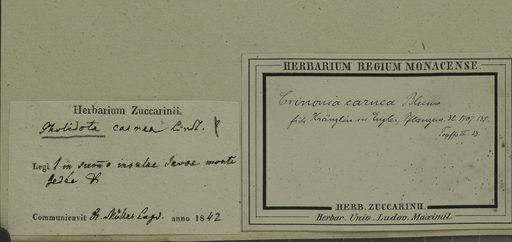 Herbarium Zuccarinii.
Pholidota carnea Lindl.
Legi in summo insulae Javae monte
Gedée
Communicavit Dr. anno 1842
HERBARIUM REGIUM MONACENSE.
Crinonia carnea Blume
fide Kränzlin in Engler, Pflanzenr. 32 1907 135
HERB. ZUCCARINII
Herbar. Univ. Ludov. Maximil.